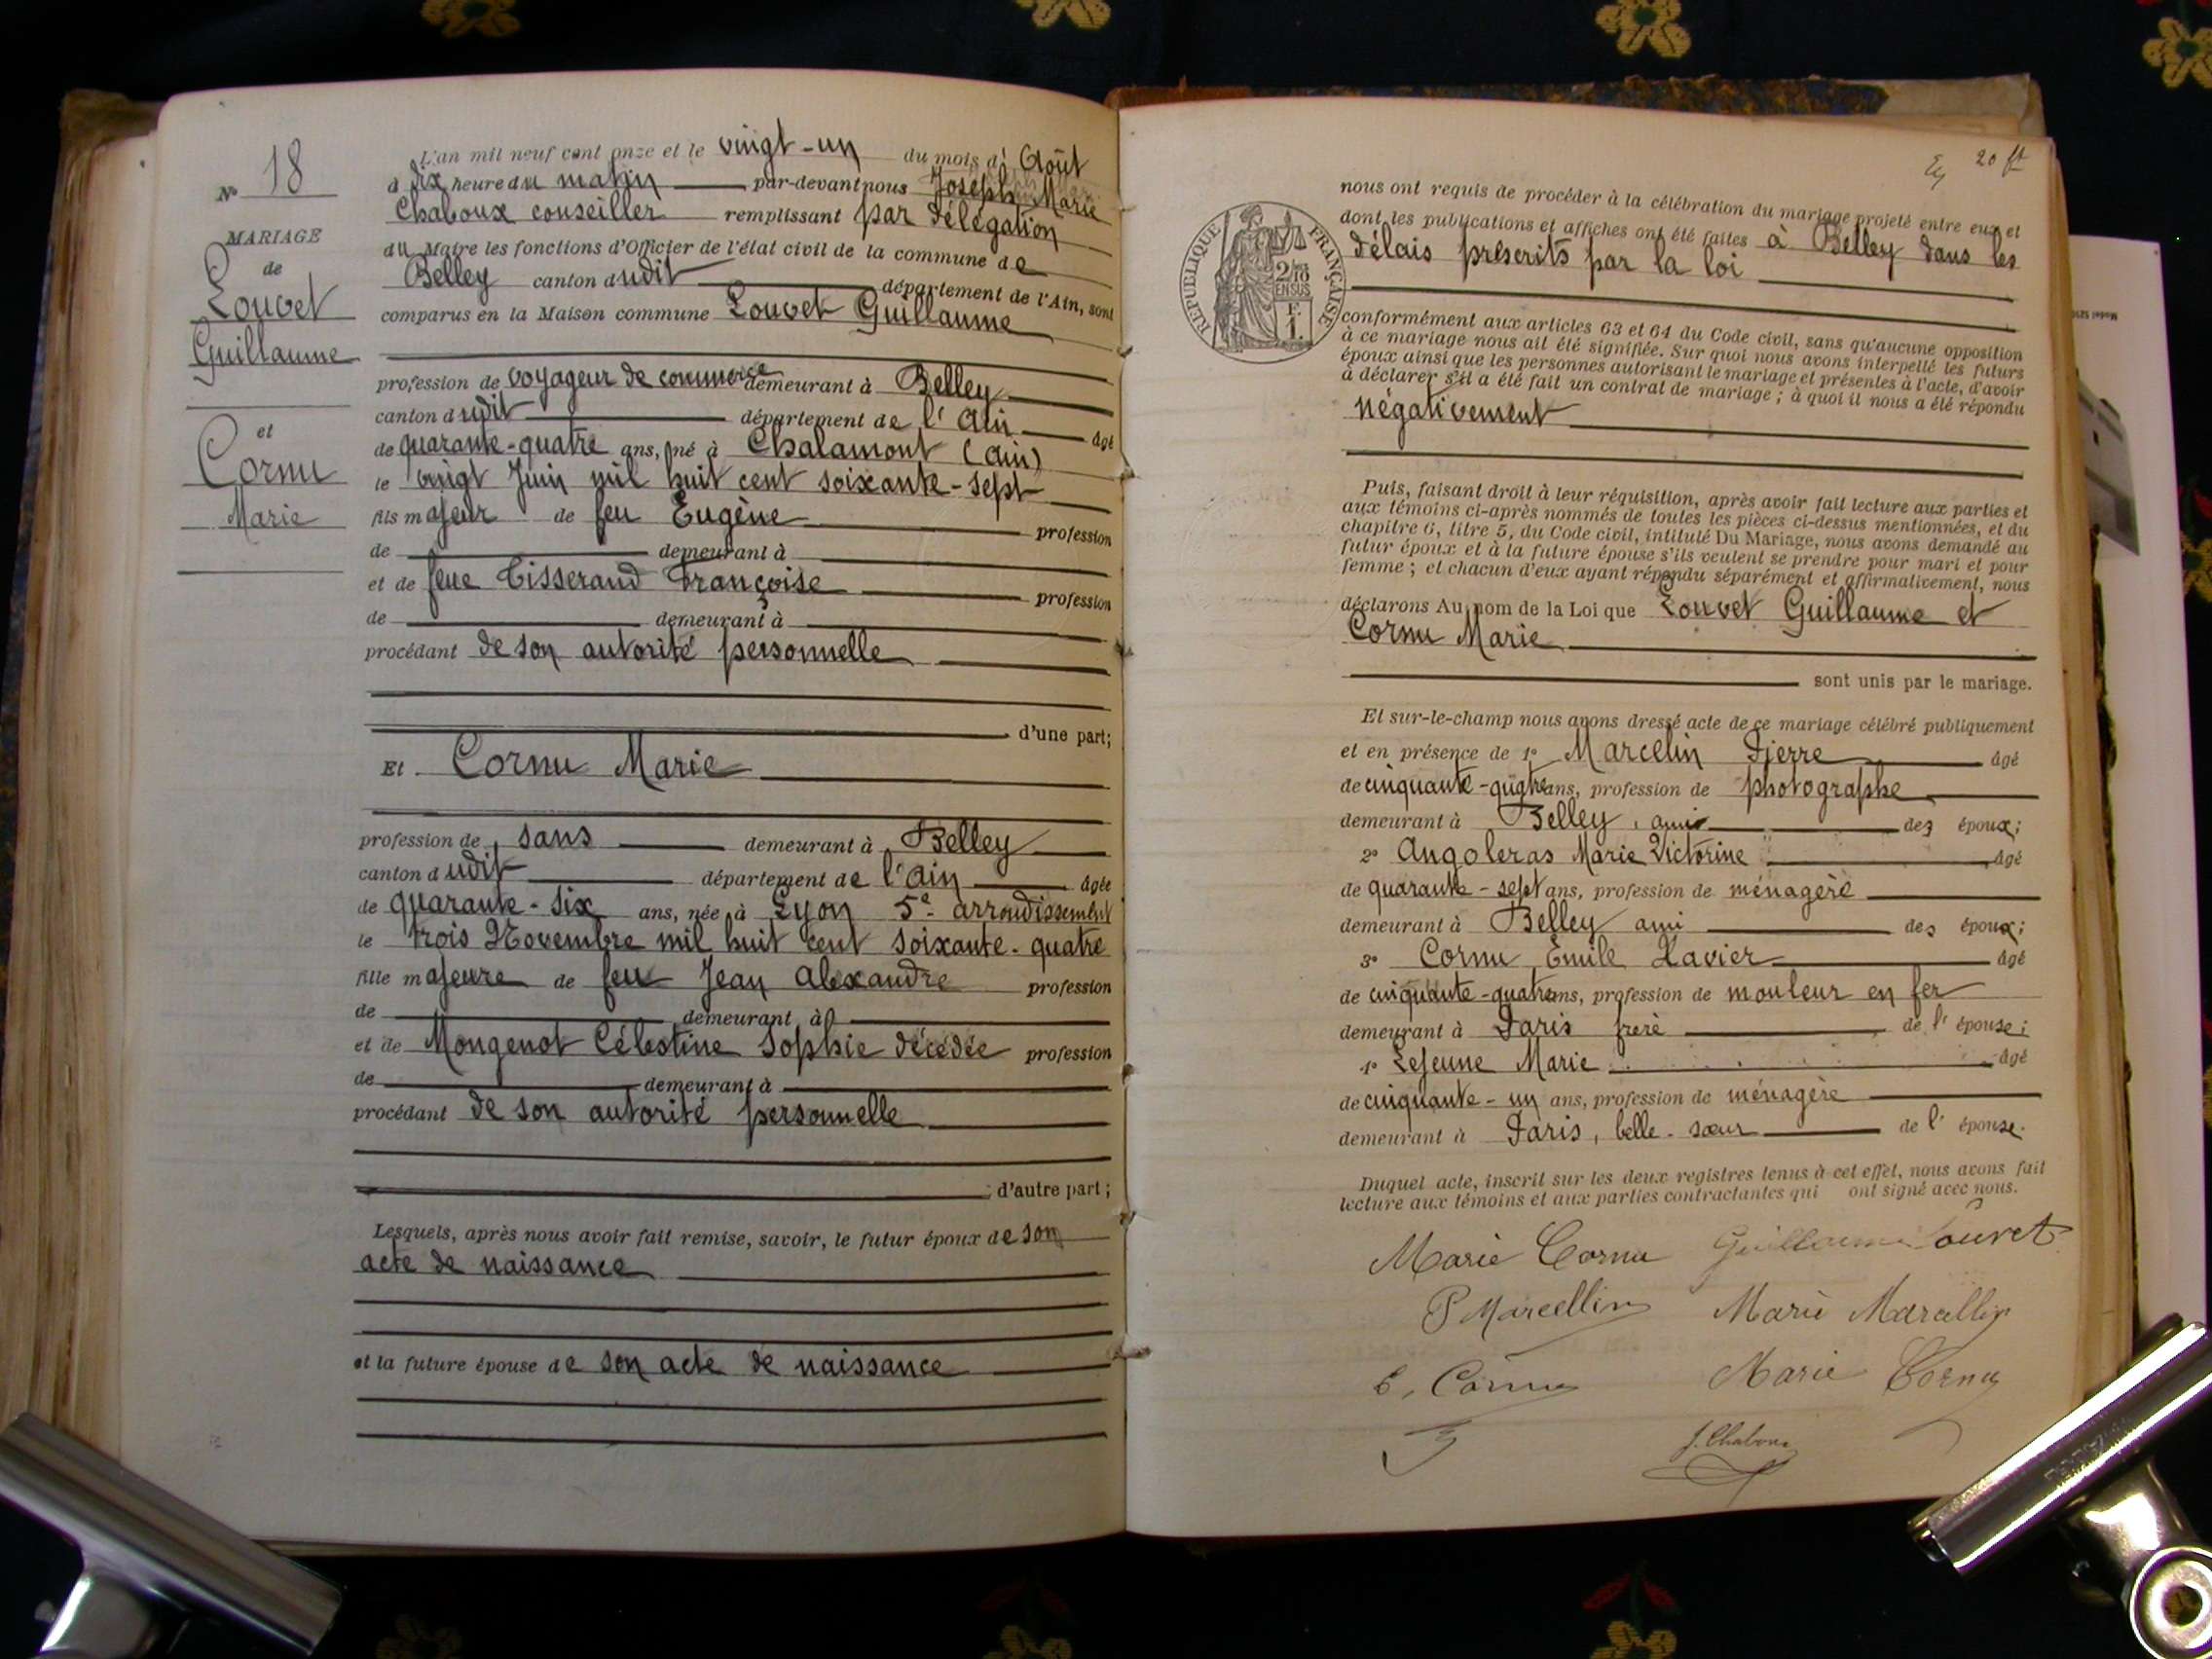 N° 18
MARIAGE
de
Louvet
Guillaume
et
Cornu
Marie
L'an mil neuf cent onze et le vingt-un du mois d' Août
à dix heure du matin par-devant nous Joseph Marie
Chaboux conseiller remplissant par délégation
du Maire les fonctions d'Officier de l'état civil de la commune de
Belley canton dudit département de l'Ain, sont
comparus en la Maison commune Louvet Guillaume
profession de voyageur de commerce demeurant à Belley
canton dudit département de l'Ain âgé
de quarante-quatre ans, né à Chalamont (Ain)
le vingt Juin mil huit cent soixante-sept
fils majeur de feu Eugène profession
de demeurant à
et de feue Tisserand Françoise profession
de demeurant à
procédant de son autorité personnelle
d'une part;
Et Cornu Marie
profession de sans demeurant à Belley
canton dudit département de l'Ain âgée
de quarante-six ans, née à Lyon 5e arrondissement
le trois Novembre mil huit cent soixante-quatre
fille majeure de feu Jean Alexandre profession
de demeurant à
et de Mongenot Célestine Sophie décédée profession
de demeurant à
procédant de son autorité personnelle
d'autre part;
Lesquels, après nous avoir fait remise, savoir, le futur époux de son
acte de naissance
et la future épouse de son acte de naissance
20 ft
RÉPUBLIQUE FRANÇAISE
2/10
EN SUS
F.
1.
nous ont requis de procéder à la célébration du mariage projeté entre eux et
dont les publications et affiches ont été faites à Belley dans les
délais prescrits par la loi
conformément aux articles 63 et 64 du Code civil, sans qu'aucune opposition
à ce mariage nous ait été signifiée. Sur quoi nous avons interpellé les futurs
époux ainsi que les personnes autorisant le mariage et présentes à l'acte, d'avoir
à déclarer s'il a été fait un contrat de mariage; à quoi il nous a été répondu
négativement
Puis, faisant droit à leur réquisition, après avoir fait lecture aux parties et
aux témoins ci-après nommés de toutes les pièces ci-dessus mentionnées, et du
chapitre 6, titre 5, du Code civil, intitulé Du Mariage, nous avons demandé au
futur époux et à la future épouse s'ils veulent se prendre pour mari et pour
femme; et chacun d'eux ayant répondu séparément et affirmativement, nous
déclarons Au nom de la Loi que Louvet Guillaume et
Cornu Marie
sont unis par le mariage.
Et sur-le-champ nous avons dressé acte de ce mariage célébré publiquement
et en présence de 1° Marcelin Pierre âgé
de cinquante-quatre ans, profession de photographe
demeurant à Belley, ami des époux;
2° Angoleras Marie Victorine âgé
de quarante-sept ans, profession de ménagère
demeurant à Belley ami des époux;
3° Cornu Emile Xavier âgé
de cinquante-quatre ans, profession de mouleur en fer
demeurant à Paris frère de l'épouse;
4° Lejeune Marie âgé
de cinquante-un ans, profession de ménagère
demeurant à Paris, belle-sœur de l'épouse.
Duquel acte, inscrit sur les deux registres tenus à cet effet, nous avons fait
lecture aux témoins et aux parties contractantes qui ont signé avec nous.
Marie Cornu Guillaume Louvet
P Marcellin Marie Marcellin
E. Cornu Marie Cornu
J. Chaboux